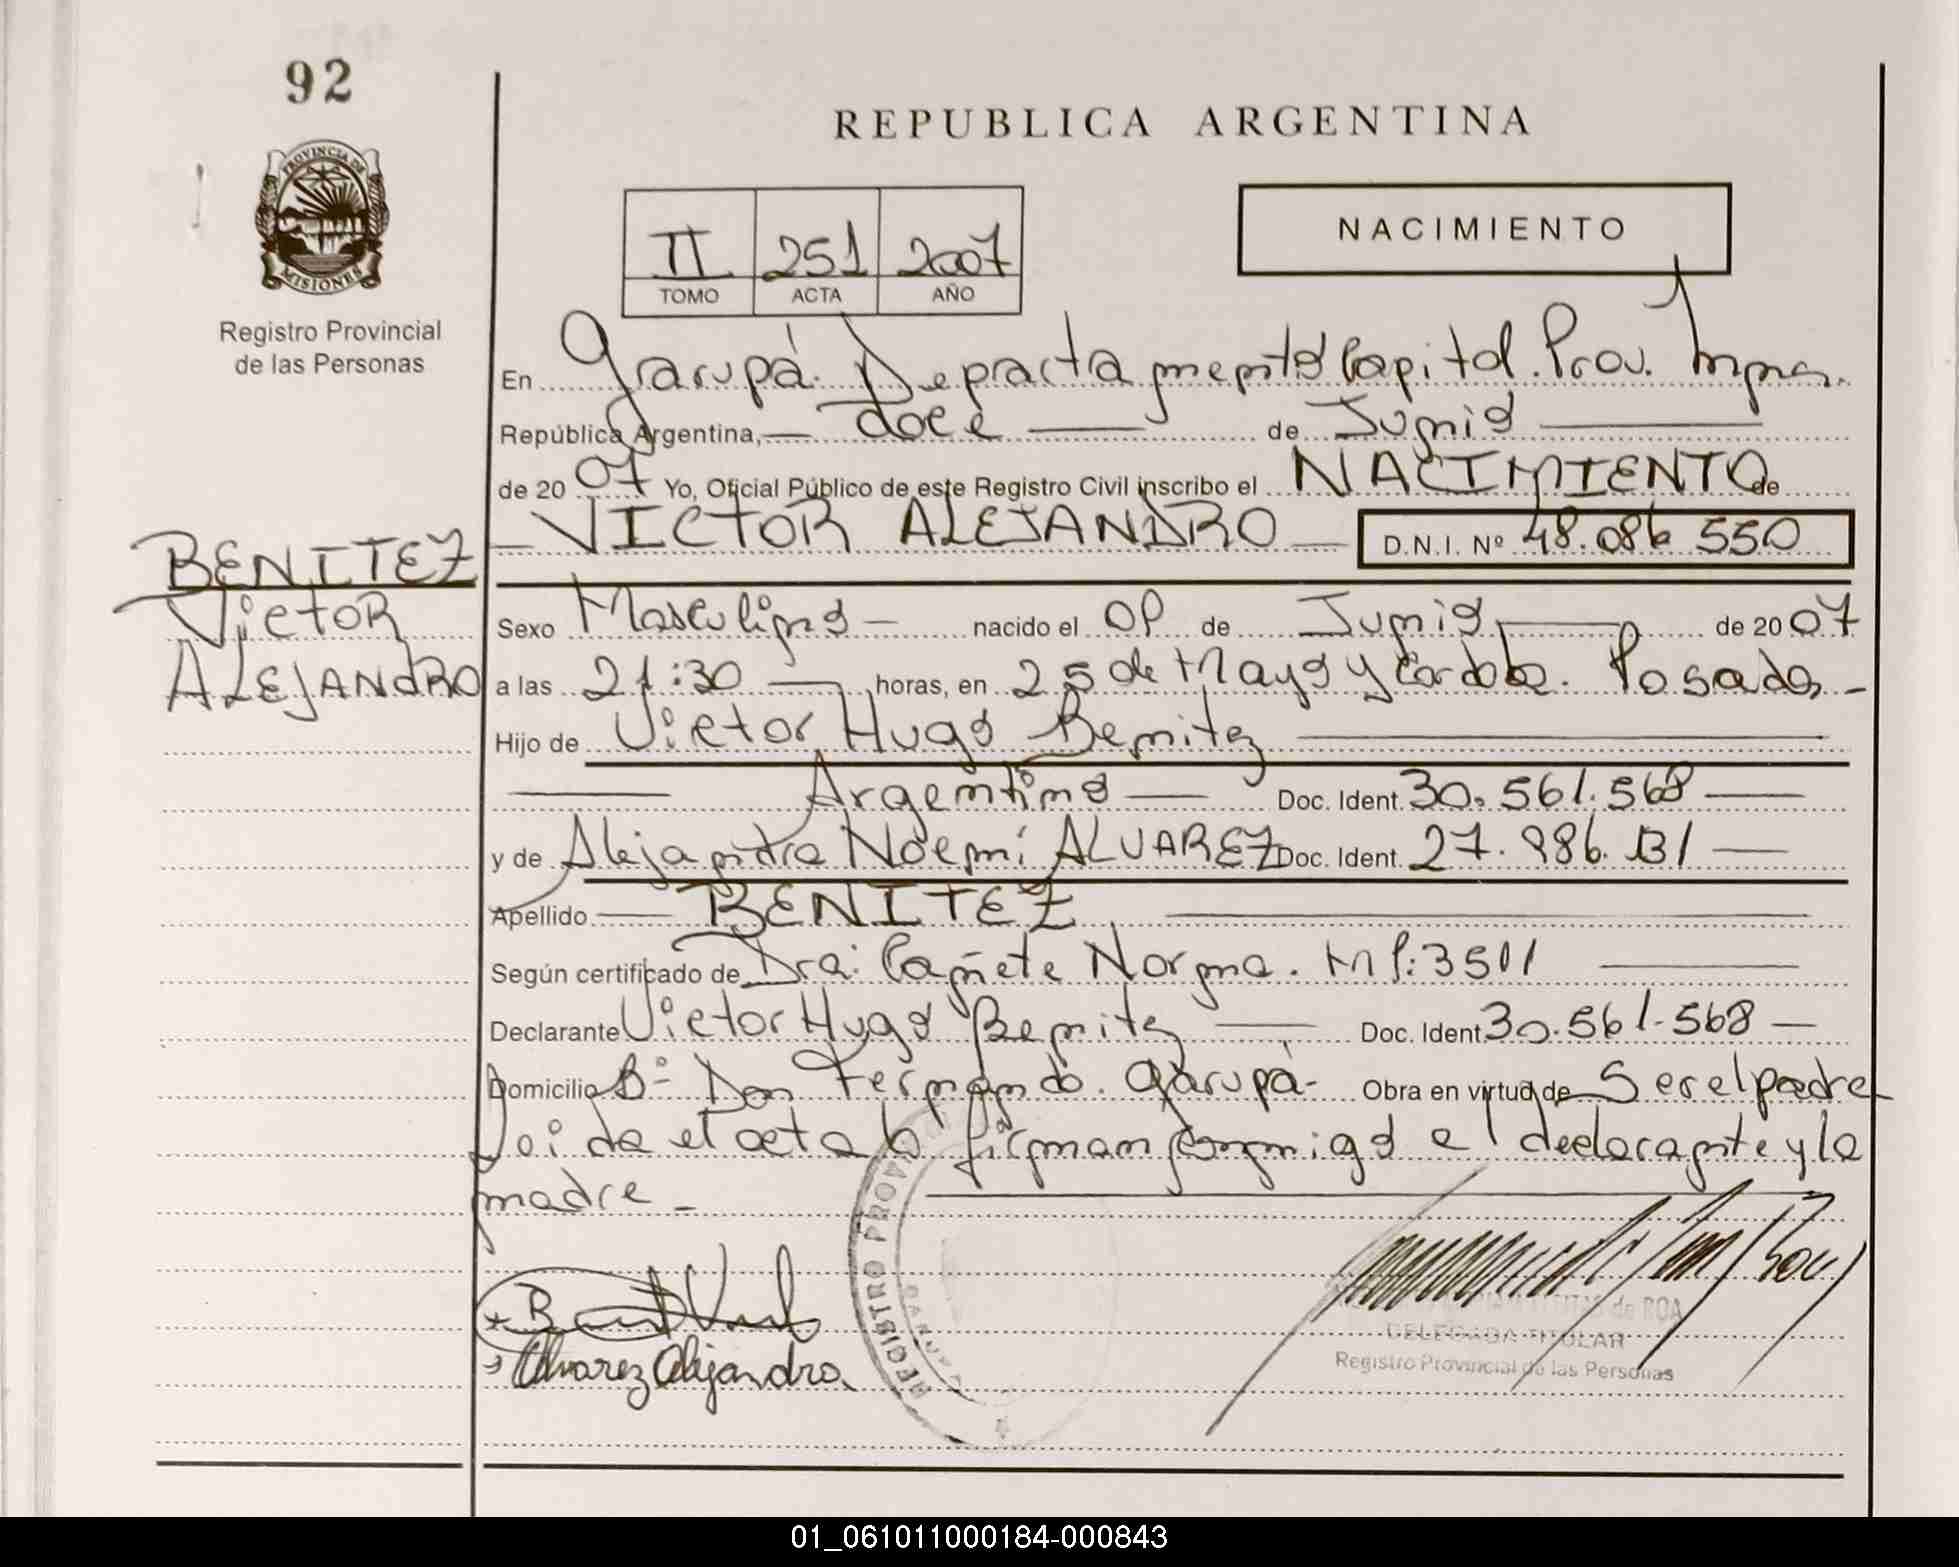 92
REPUBLICA ARGENTINA
PROVINCIA DE
MISIONES
Registro Provincial
de las Personas
NACIMIENTO
II 251 2007
TOMO ACTA AÑO
En Garupá. Depractamento Capital. Prov. Mnes.
República Argentina, doce de Junio
de 2007 Yo, Oficial Público de este Registro Civil inscribo el NACIMIENTO de
VICTOR ALEJANDRO D.N.I. Nº 48.086 550
BENITEZ
Victor
ALEJANDRO
Sexo Masculino nacido el de Junio de 2007
a las 21:30 horas, en 25 de Mayo y Cordoba. Posadas
Hijo de Victor Hugo Benitez
Argentino Doc. Ident. 30.561.568
y de Alejandra Noemí ALVAREZ Doc. Ident. 27.986.131
Apellido BENITEZ
Según certificado de Dra. Cañete Norma. MP: 3511
Declarante Victor Hugo Benitez Doc. Ident. 30.561.568
Domicilio Bº Don Fernando. Garupá. Obra en virtud de Ser el padre
Loida el acta la firman conmigo el declarante y la
madre
REGISTRO PROVINCIAL
Alvarez Alejandra
de ROA
DELEGADA TITULAR
Registro Provincial de las Personas
01_061011000184-000843